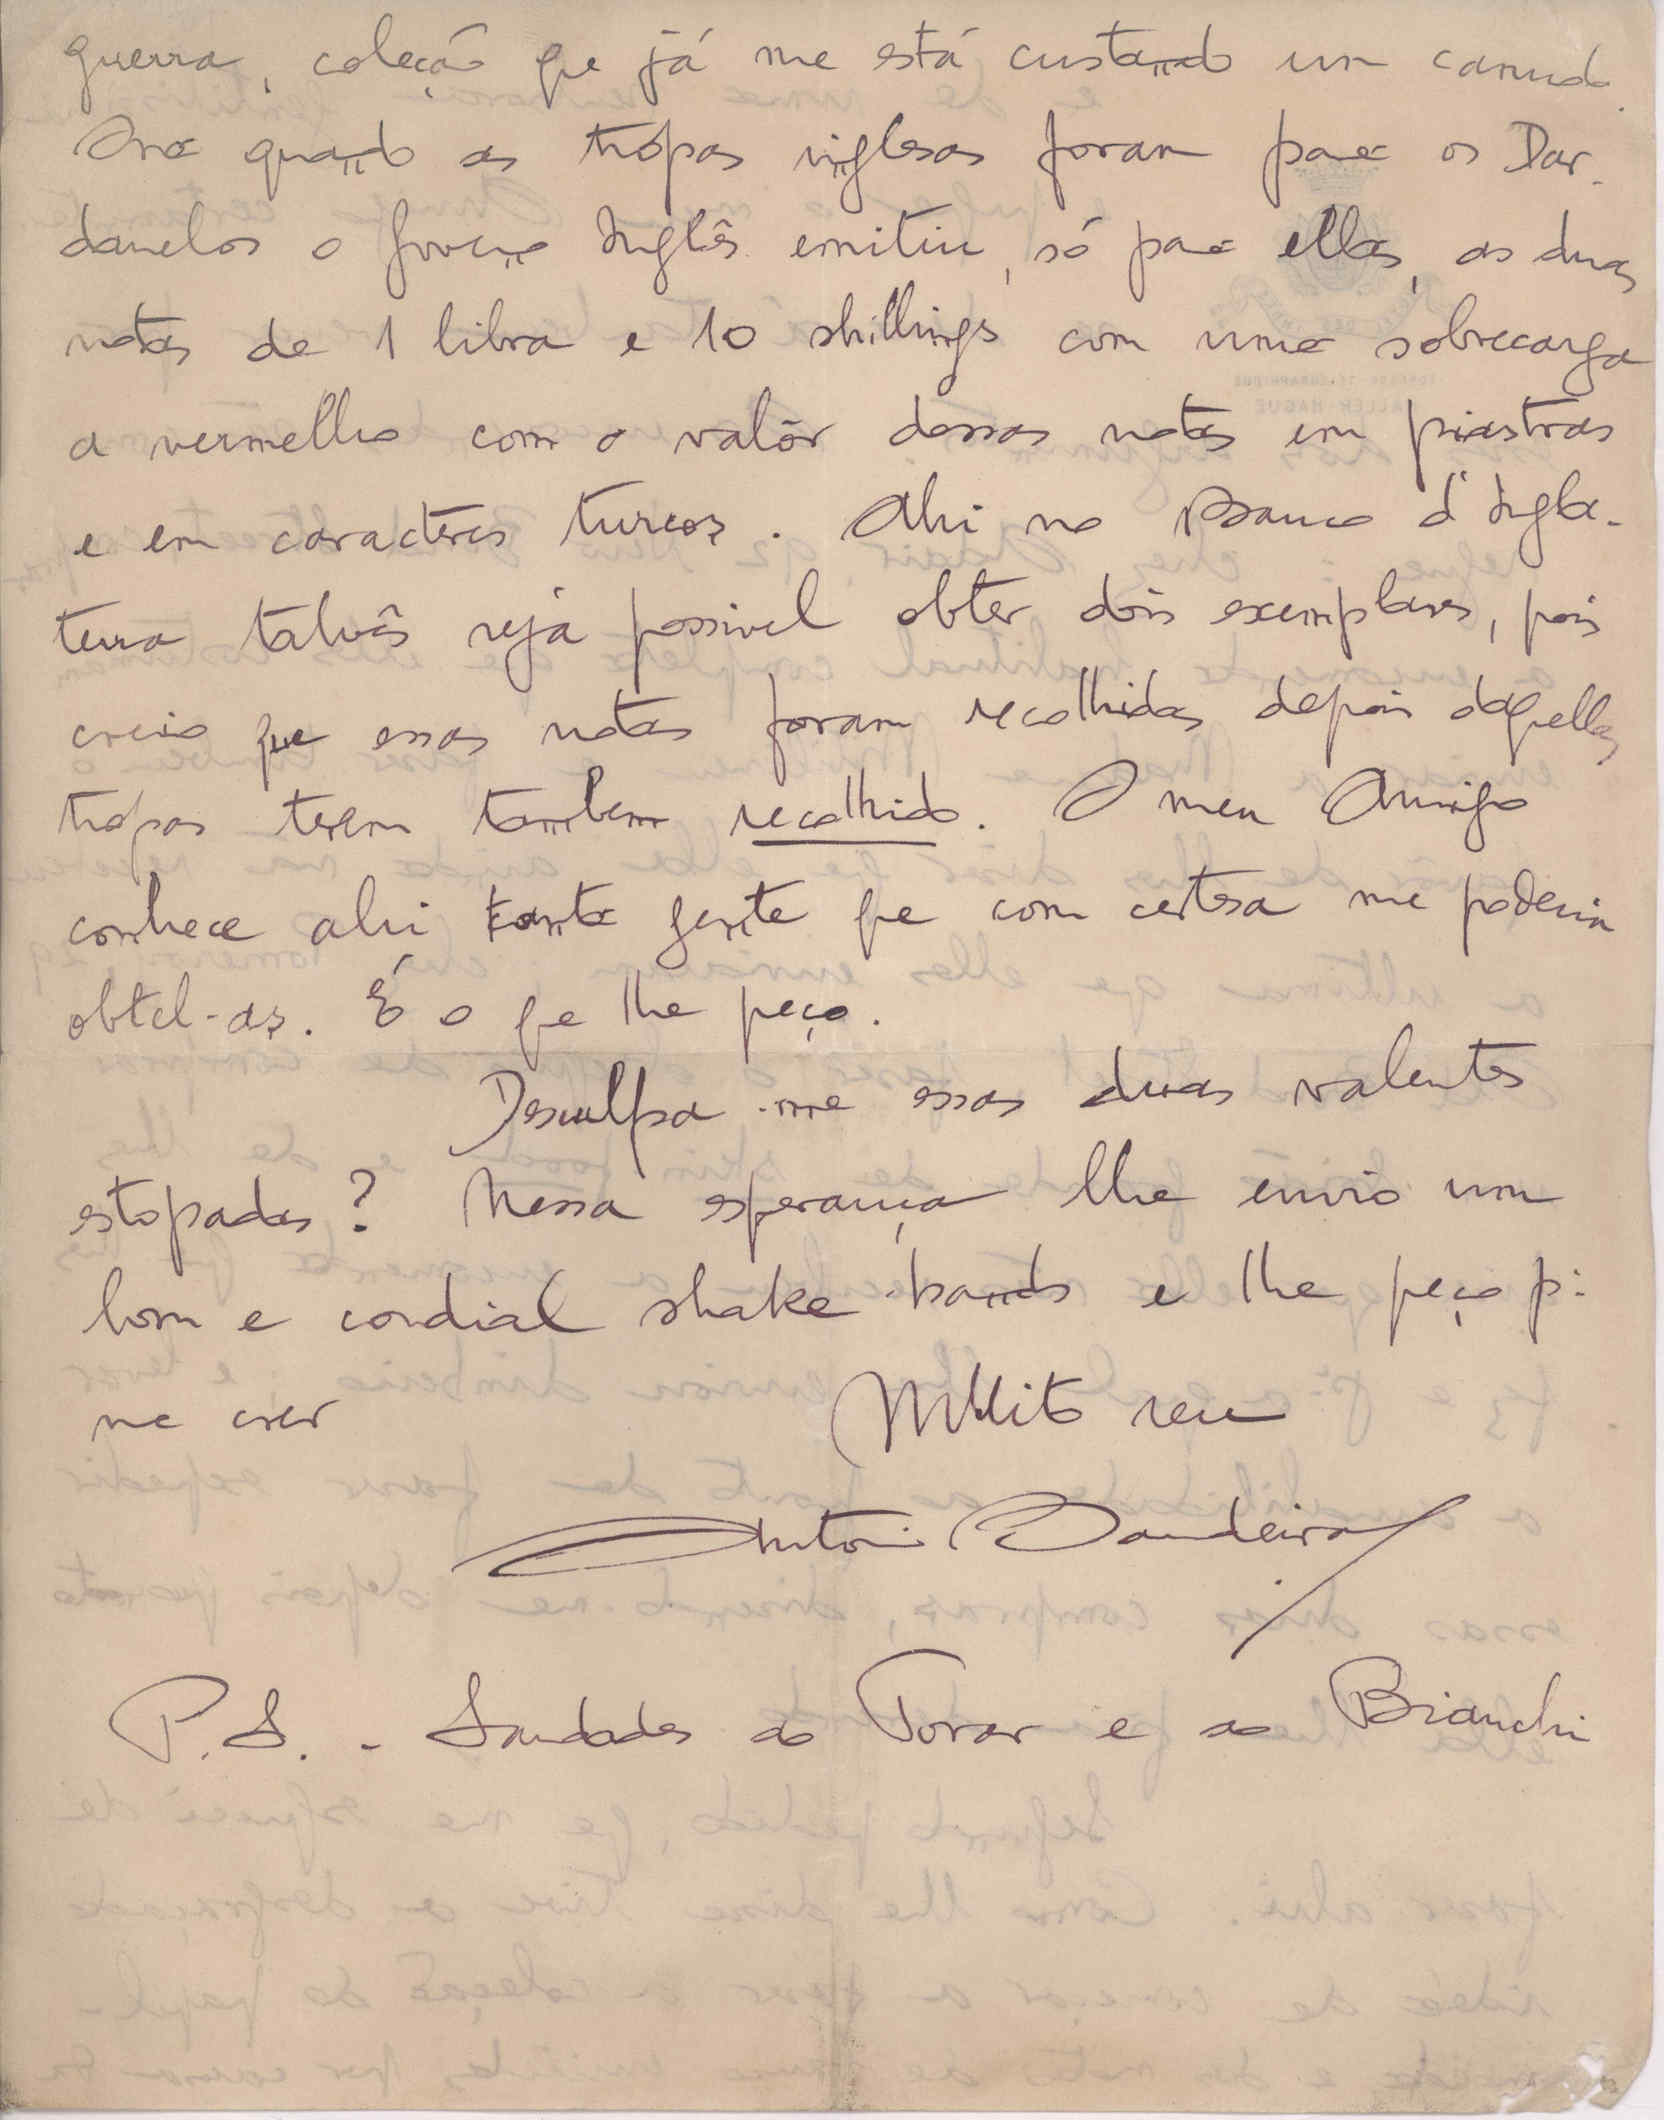 guerra, coleção que já me está custando um canudo.
Ora quando as trópas inglesas foram para os Dar-
danelos o governo Inglês emitiu, só para ellas, as duas
notas de 1 libra e 10 shillings com uma sobrecarga
a vermelho com o valôr dessas notas em piastras
e em caracteres turcos. Ahi no Banco d'Ingla-
terra talvês seja possivel obter dois exemplares, pois
creio que essas notas foram recolhidas depois daquellas
trópas terem tambem recolhido. O meu Amigo
conhece ahi tanta gente que com certesa me poderia
obtel-as. É o que lhe peço.
Desculpa-me essas duas valentes
estopadas? Nessa esperança lhe envio um
bom e cordial shake-hands e lhe peço pª
me crer
Muito seu
Antonio Bandeira
P.S. - Saudades ao Tovar e ao Bianchi